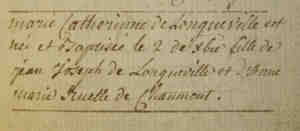 marie Catherinne de Longueville est
né et Baptisée le 2 de Xbre fille de
jean Joseph de Longueville et d'Anne
marie Ruelle de Chaumont.